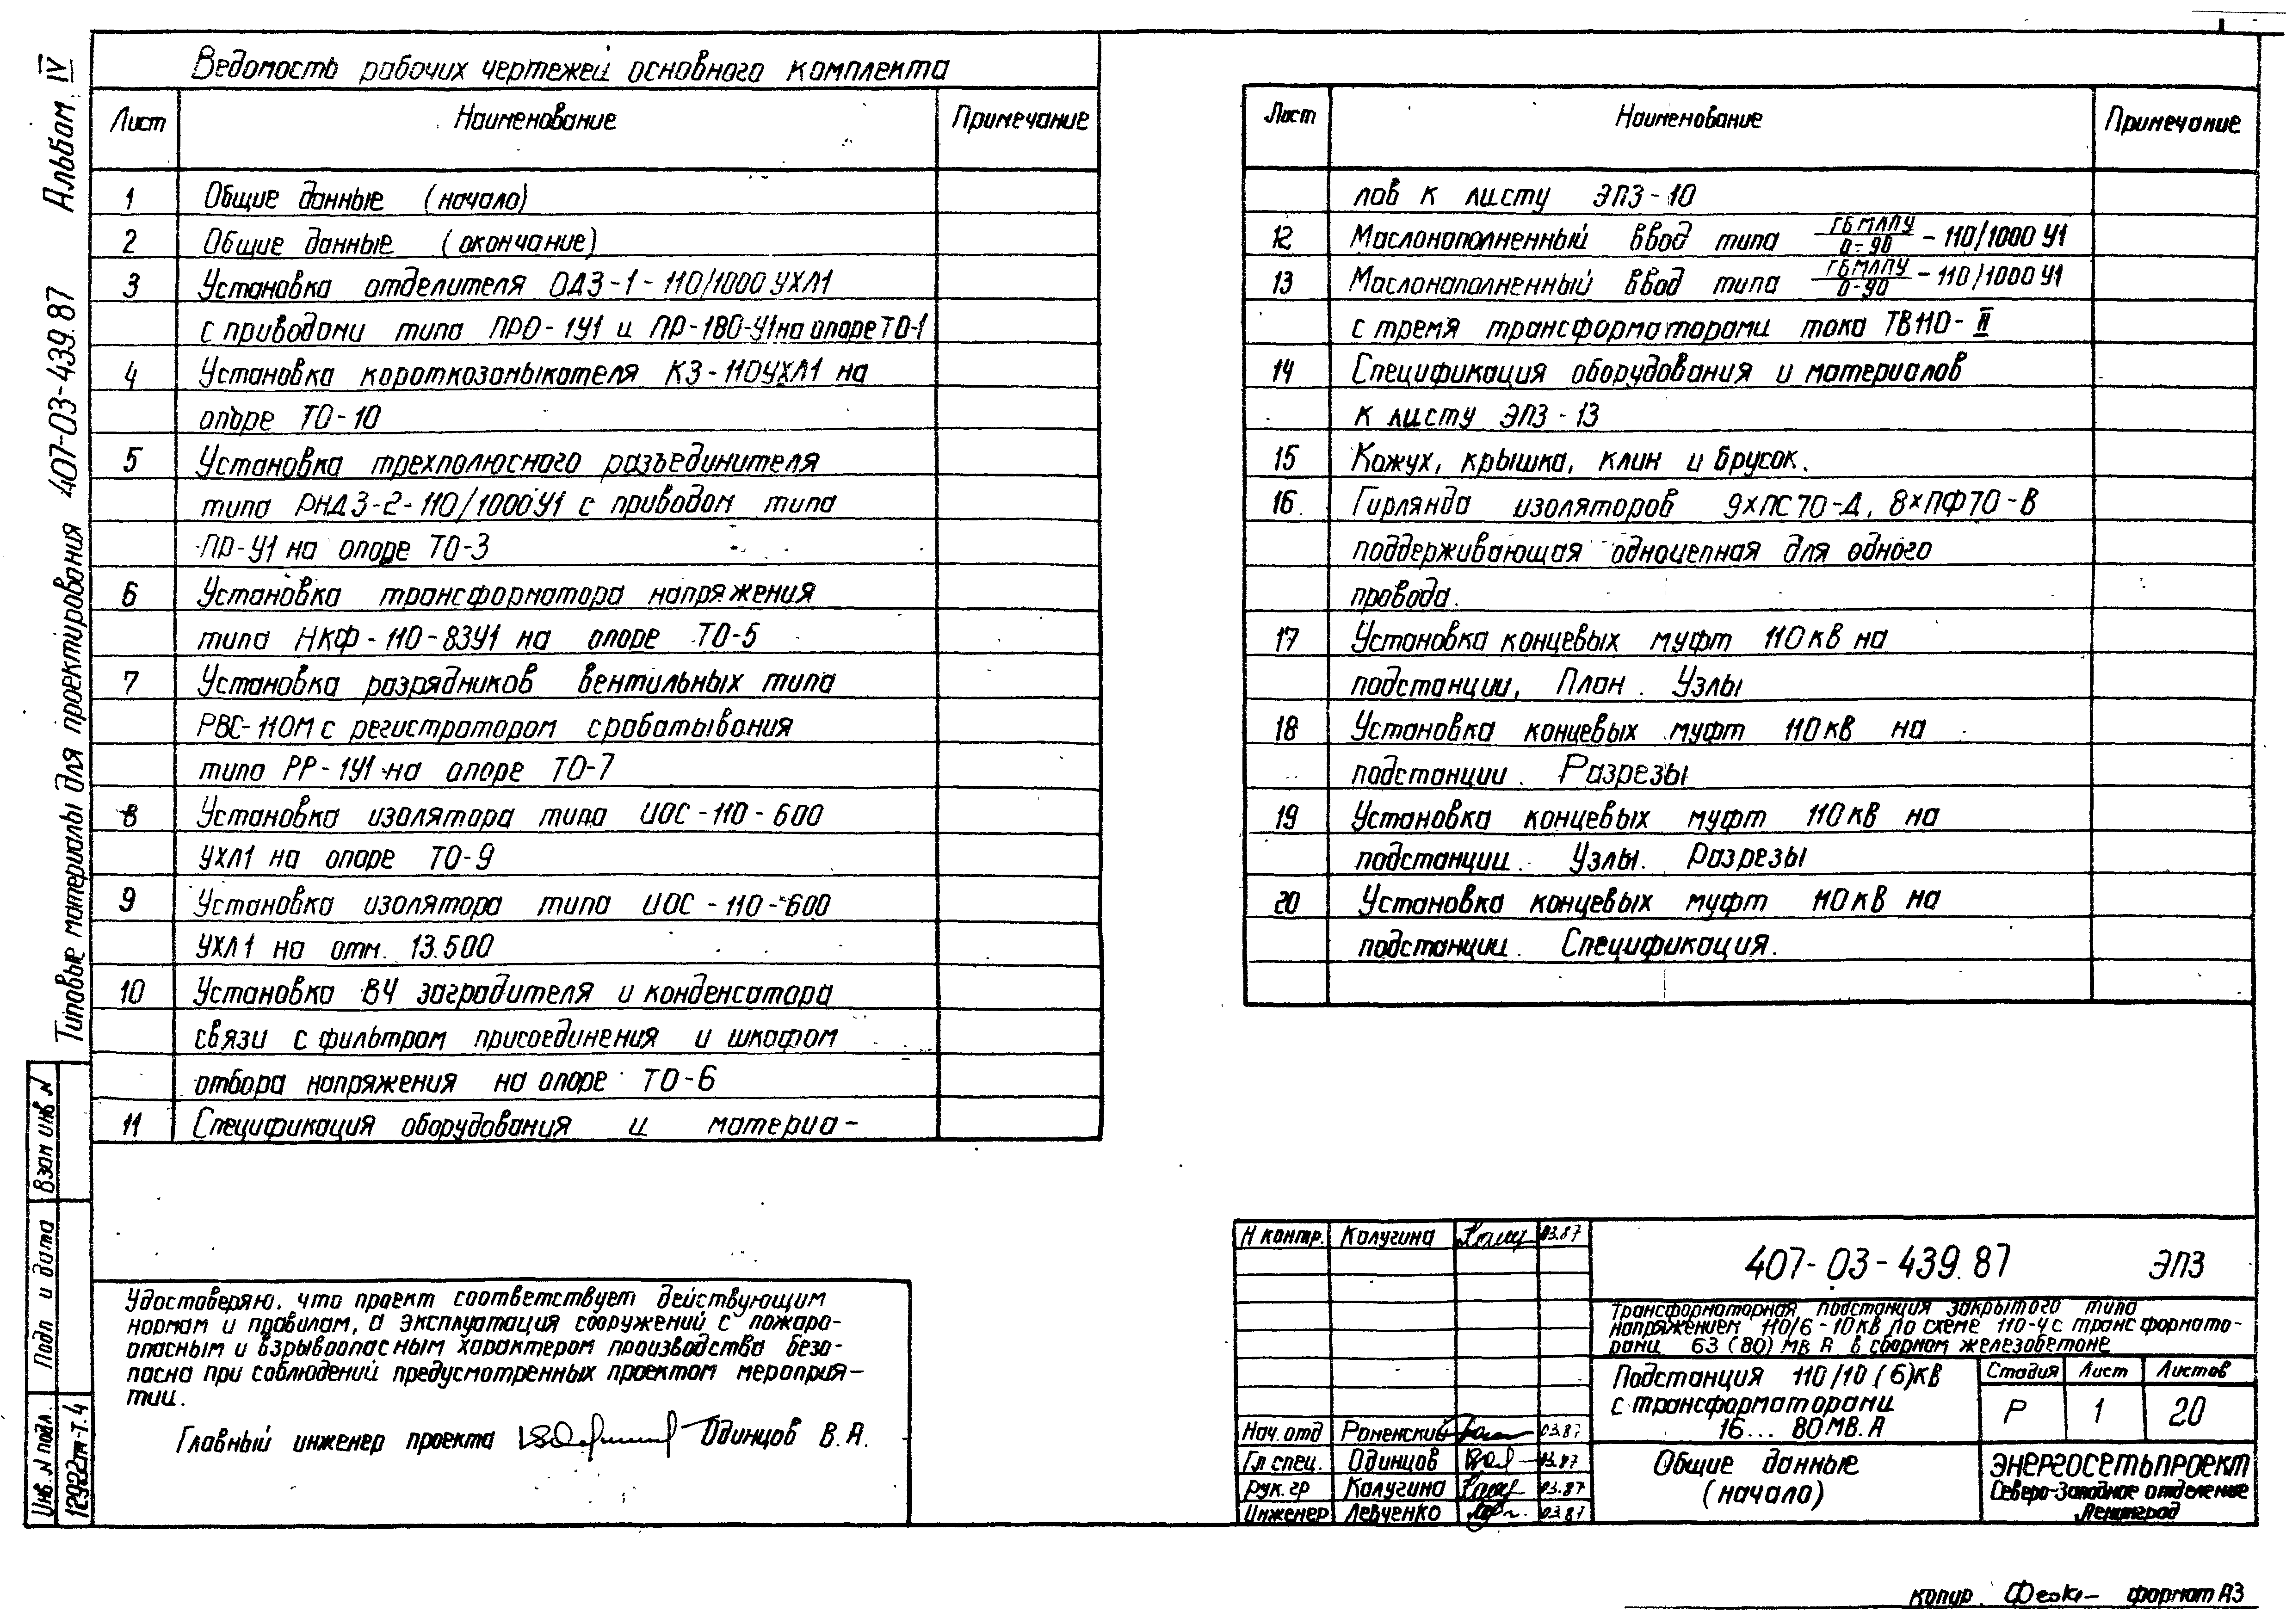 Альбом IV
Типовые материалы для проектирования 407-03-439.87
Ведомость рабочих чертежей основного комплекта
Лист Наименование Примечание
1 Общие данные (начало)
2 Общие данные (окончание)
3 Установка отделителя ОДЗ-1-110/1000 УХЛ1
с приводами типа ПРО-1У1 и ПР-180-У1 на опоре ТО-1
4 Установка короткозамыкателя КЗ-110УХЛ1 на
опоре ТО-10
5 Установка трехполюсного разъединителя
типа РНДЗ-2-110/1000У1 с приводом типа
ПР-У1 на опоре ТО-3
6 Установка трансформатора напряжения
типа НКФ-110-83У1 на опоре ТО-5
7 Установка разрядников вентильных типа
РВС-110М с регистратором срабатывания
типа РР-1У1 на опоре ТО-7
8 Установка изолятора типа ИОС-110-600
УХЛ1 на опоре ТО-9
9 Установка изолятора типа ИОС-110-600
УХЛ1 на отм. 13.500
10 Установка ВЧ заградителя и конденсатора
связи с фильтром присоединения и шкафом
отбора напряжения на опоре ТО-6
11 Спецификация оборудования и материа-
Лист Наименование Примечание
лов к листу ЭПЗ-10
12 Маслонаполненный ввод типа ГБМЛПУ/0-90 - 110/1000 У1
13 Маслонаполненный ввод типа ГБМЛПУ/0-90 - 110/1000 У1
с тремя трансформаторами тока ТВ110-II
14 Спецификация оборудования и материалов
к листу ЭПЗ-13
15 Кожух, крышка, клин и брусок.
16 Гирлянда изоляторов 9×ПС70-Д, 8×ПФ70-В
поддерживающая одноцепная для одного
провода.
17 Установка концевых муфт 110кВ на
подстанции, План. Узлы
18 Установка концевых муфт 110кВ на
подстанции. Разрезы
19 Установка концевых муфт 110кВ на
подстанции. Узлы. Разрезы
20 Установка концевых муфт 110кВ на
подстанции. Спецификация.
Взам инв N
Подп и дата
Инв. N подл.
12922тм-т.4
Удостоверяю, что проект соответствует действующим
нормам и правилам, а эксплуатация сооружений с пожаро-
опасным и взрывоопасным характером производства безо-
пасна при соблюдений предусмотренных проектом мероприя-
тии.
Главный инженер проекта Одинцов В.А.
Н контр. Калугина 03.87
Нач. отд Роменский 03.87
Гл спец. Одинцов 03.87
Рук. гр Калугина 03.87
Инженер Левченко 03.87
407-03-439.87 ЭПЗ
Трансформаторная подстанция закрытого типа
напряжением 110/6-10кВ по схеме 110-4 с трансформато-
рами 63 (80) МВА в сборном железобетоне
Подстанция 110/10(6)кВ
с трансформаторами
16...80МВ.А
Стадия Лист Листов
Р 1 20
Общие данные
(начало)
ЭНЕРГОСЕТЬПРОЕКТ
Северо-Западное отделение
Ленинград
копир. формат А3